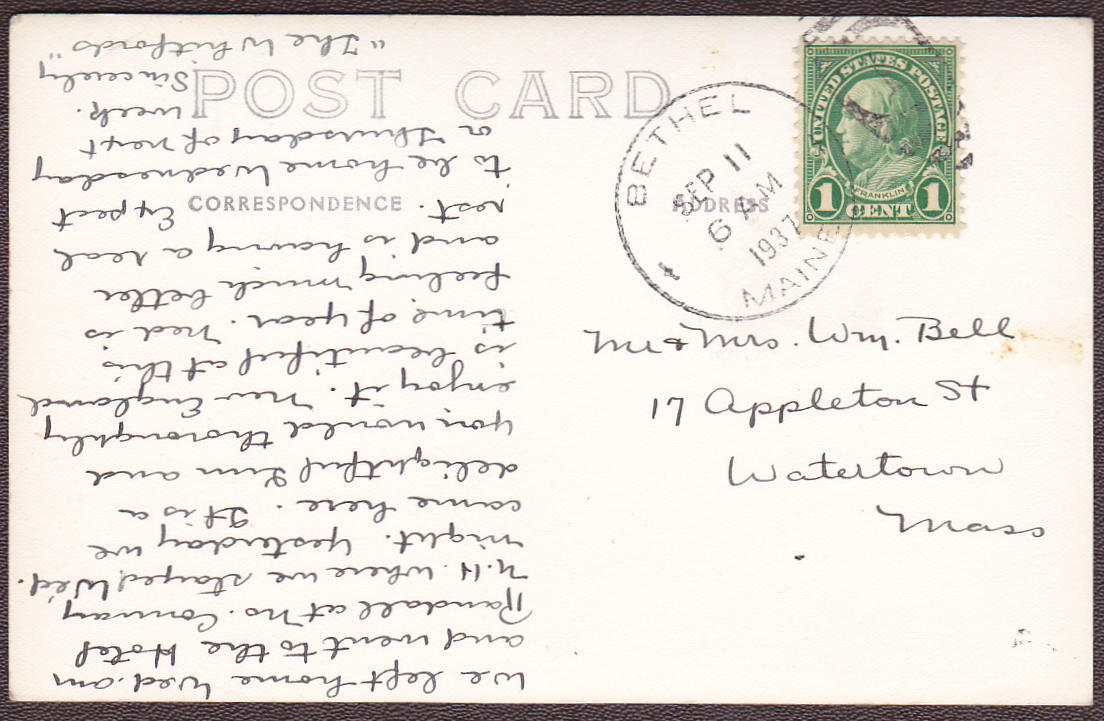 POST CARD
CORRESPONDENCE
ADDRESS
BETHEL
SEP 11
6 AM
1937
MAINE
UNITED STATES POSTAGE
FRANKLIN
1 CENT 1
Mr & Mrs. Wm. Bell
17 Appleton St
Watertown
Mass
We left home Wed. am
and went to the Hotel
Randall at No. Conway
N.H. where we stayed Wed.
night. Yesterday we
came here. It is a
delightful Inn and
you would thoroughly
enjoy it. New England
is beautiful at this
time of year. Ned is
feeling much better
and is having a real
rest. Expect
to be home Wednesday
or Thursday of next
week.
Sincerely
"The Whitfords"